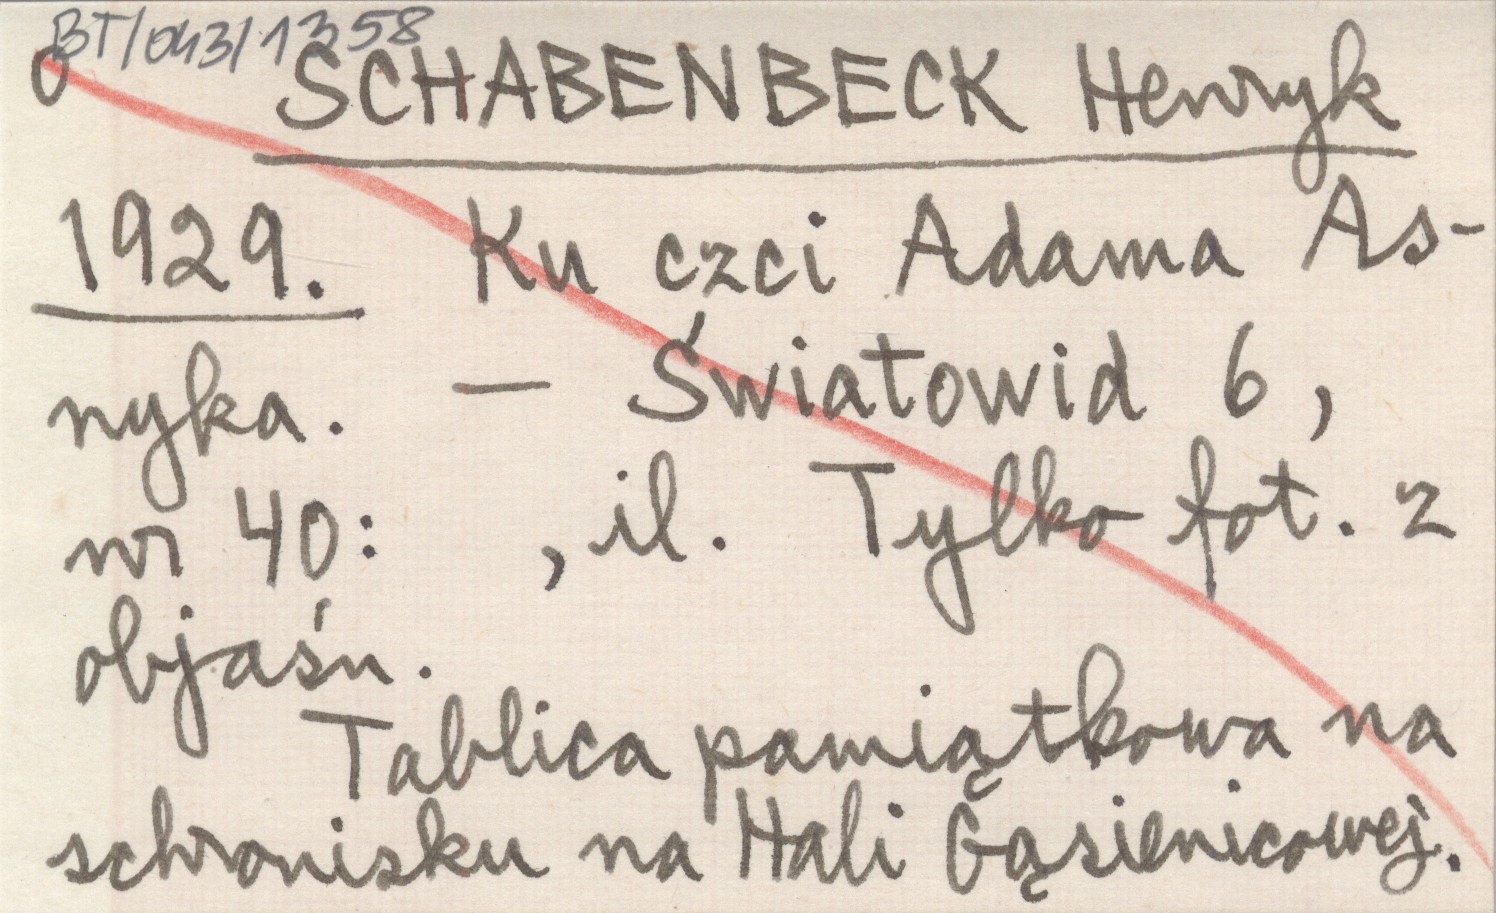 BT/043/1358
SCHABENBECK Henryk
1929. Ku czci Adama As-
nyka. — Światowid 6,
nr 40: , il. Tylko fot. z
objaśn.
Tablica pamiątkowa na
schronisku na Hali Gąsienicowej.